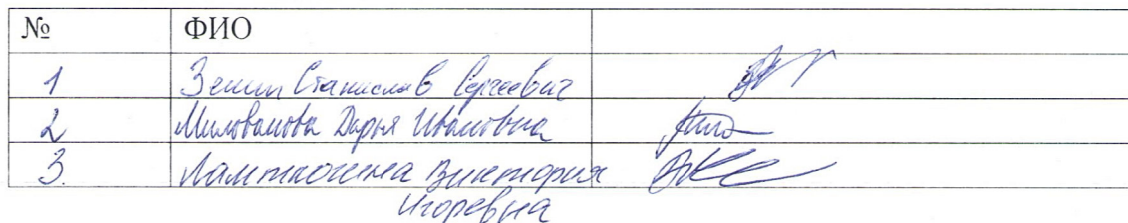 № ФИО
1 Зенин Станислав Сергеевич
2 Милованова Дарья Ивановна
3. Виктория
Игоревна